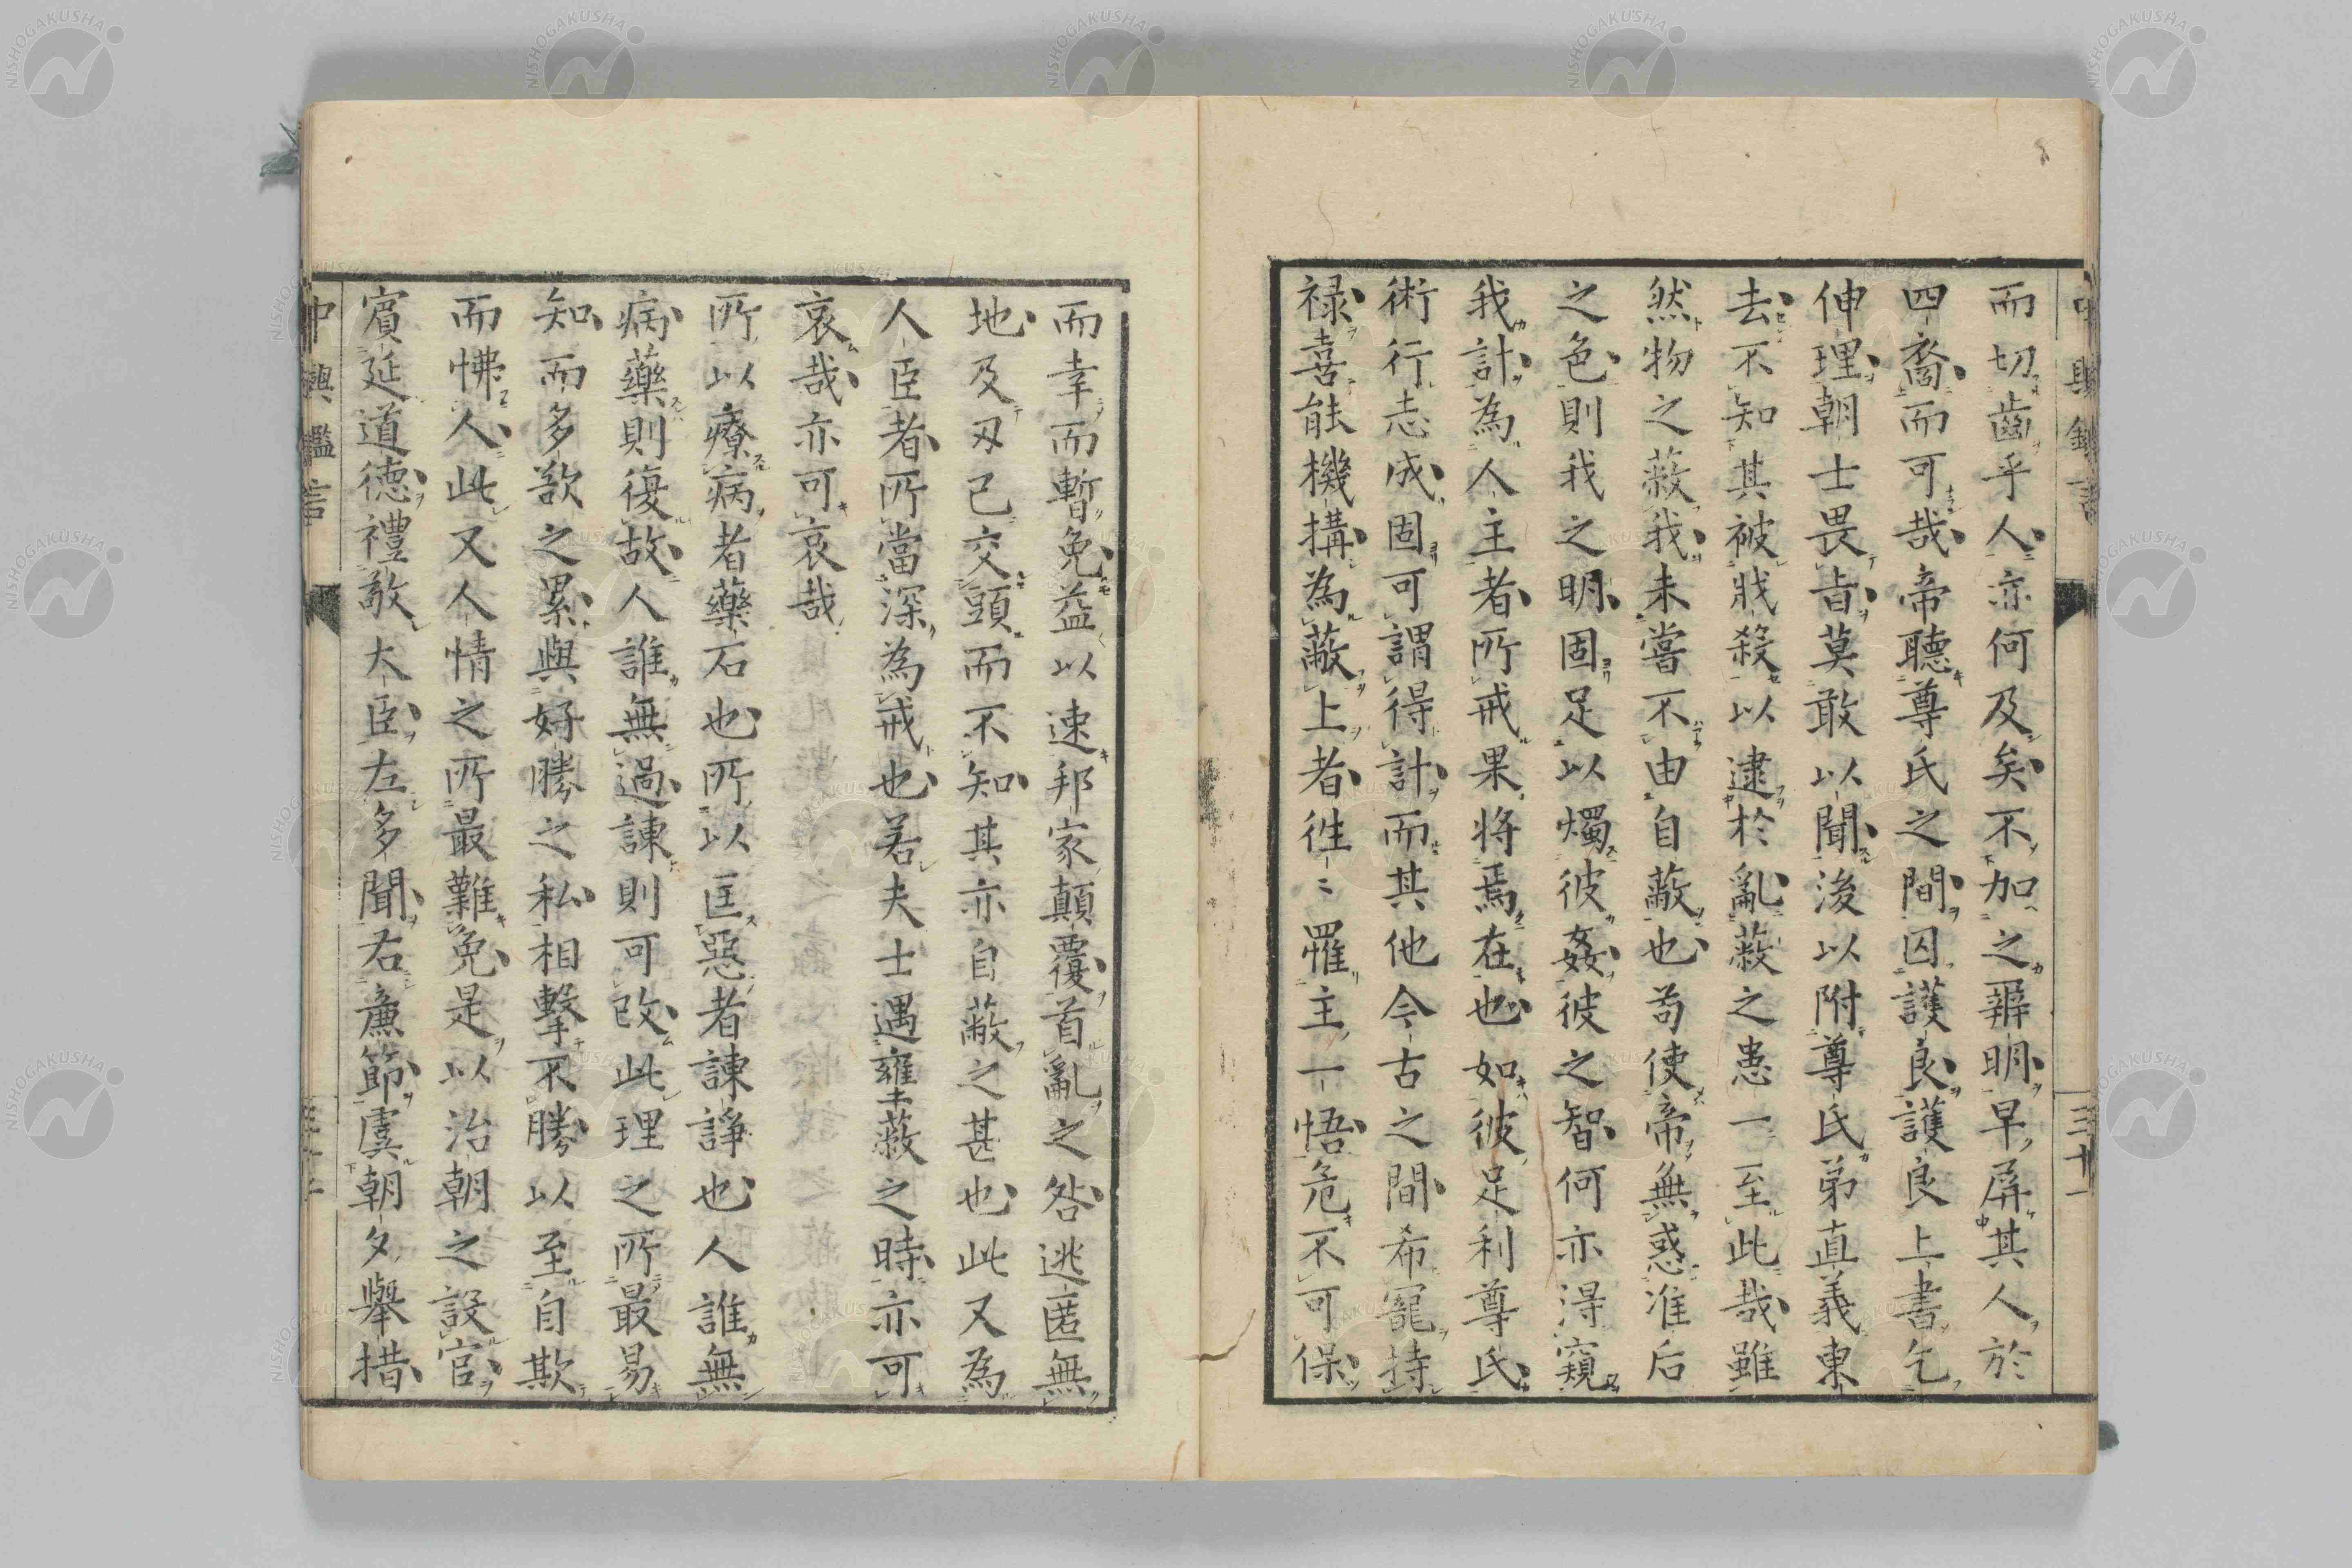 而切齒乎人亦何及矣不加之辨明早屏其人於
四裔而可哉帝聽尊氏之間囚護良護良上書乞
伸理朝士畏旨莫敢以聞後以附尊氏弟直義東
去不知其被戕殺以逮於亂蔽之患一至此哉雖
然物之蔽我未嘗不由自蔽也苟使帝無惑准后
之色則我之明固足以燭彼姦彼之智何亦得窺
我計為人主者所戒果將焉在也如彼足利尊氏
術行志成固可謂得計而其他今古之間希寵持
祿喜能機搆為蔽上者徃〻罹主一悟危不可保
而幸而暫免益以速邦家顛覆首亂之咎逃匿無
地及刃已交頭而不知其亦自蔽之甚也此又為
人臣者所當深為戒也若夫士遇壅蔽之時亦可
哀哉亦可哀哉
所以療病者藥石也所以匡惡者諫諍也人誰無
病藥則復故人誰無過諫則可改此理之所最易
知而多欲之累與好勝之私相擊不勝以至自欺
而怫人此又人情之所最難免是以治朝之設官
賓延道德禮敬大臣左多聞右廉節虞朝夕舉措
中興鑑言
三十一